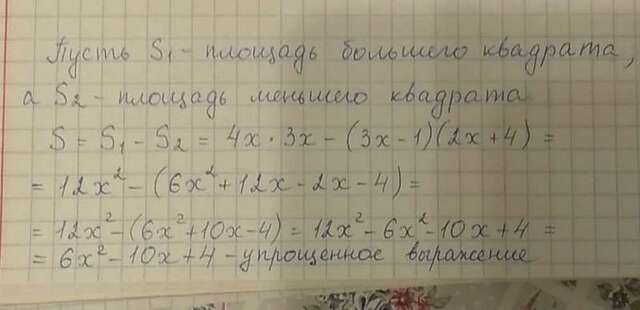 Пусть S₁ - площадь большего квадрата,
а S₂ - площадь меньшего квадрата
S = S₁ - S₂ = 4x · 3x - (3x - 1)(2x + 4) =
= 12x² - (6x² + 12x - 2x - 4) =
= 12x² - (6x² + 10x - 4) = 12x² - 6x² - 10x + 4 =
= 6x² - 10x + 4 - упрощенное выражение